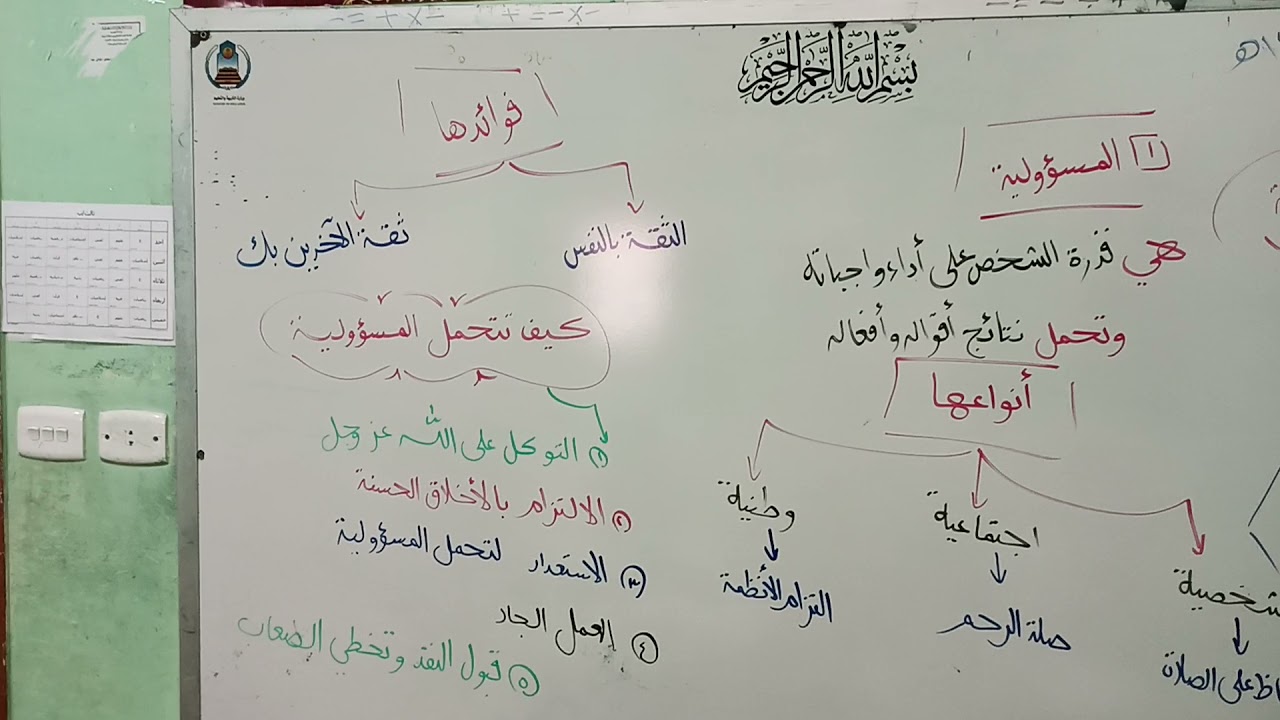 بسم الله الرحمن الرحيم
١ المسؤولية
هي قدرة الشخص على أداء واجباته
وتحمل نتائج أقواله وأفعاله
أنواعها
شخصية
على الصلاة
اجتماعية
صلة الرحم
وطنية
التزام الأنظمة
فوائدها
الثقة بالنفس
ثقة الآخرين بك
كيف نتحمل المسؤولية
١ التوكل على الله عز وجل
٢ الالتزام بالأخلاق الحسنة
٣ الاستعداد لتحمل المسؤولية
٤ العمل الجاد
٥ قبول النقد وتخطي الصعاب
وزارة التربية والتعليم